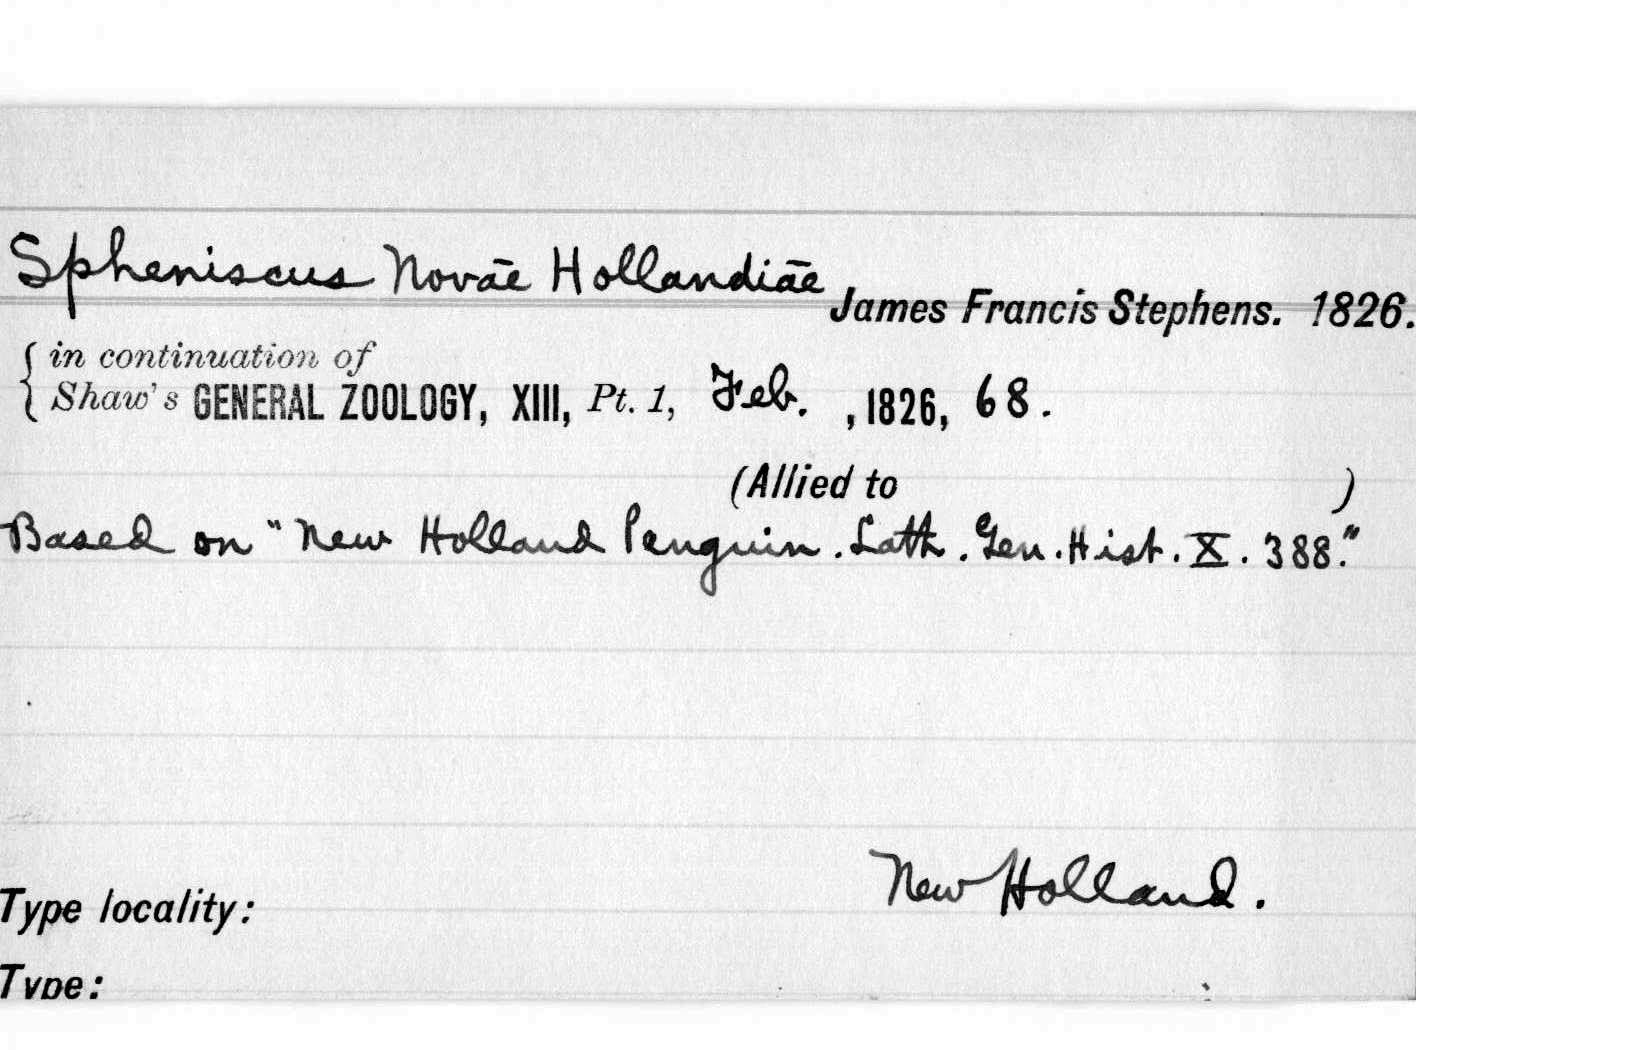 Spheniscus Novae Hollandiae James Francis Stephens. 1826.
{ in continuation of
Shaw's GENERAL ZOOLOGY, XIII, Pt. 1, Feb. , 1826, 68.
(Allied to )
Based on "New Holland Penguin. Lath. Gen. Hist. X. 388."
New Holland.
Type locality:
Type: